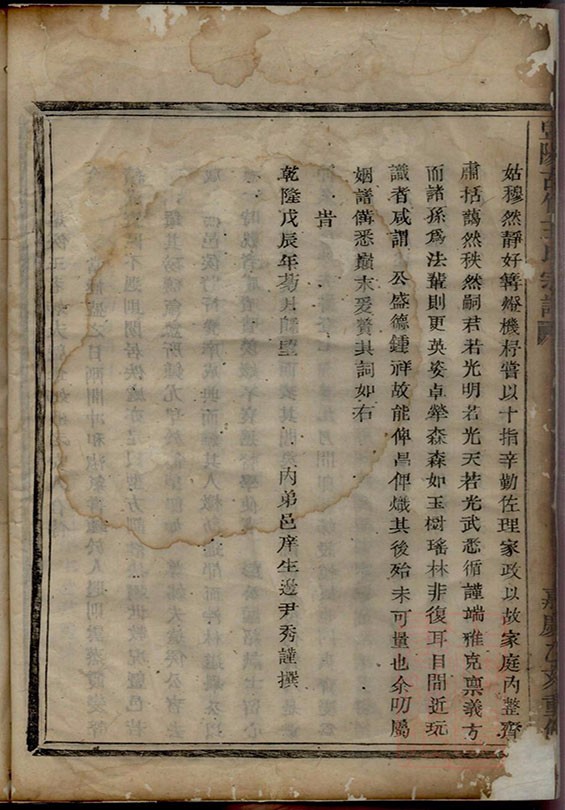 姑穆然靜好篝燈機杼嘗以十指辛勤佐理家政以故家庭內整齊
肅括藹然秩然嗣君若光明若光天若光武悉循謹端雅克稟義方
而諸孫為法輩則更英姿卓犖森森如玉樹瑤林非復耳目間近玩
識者咸謂 公盛德鍾祥故能俾昌俾熾其後殆未可量也余叨屬
姻諸備悉巔末爰贊其詞如右
旹
乾隆戊辰年菊月 內弟邑庠生邊尹秀謹撰
氏宗譜
嘉慶乙亥重修